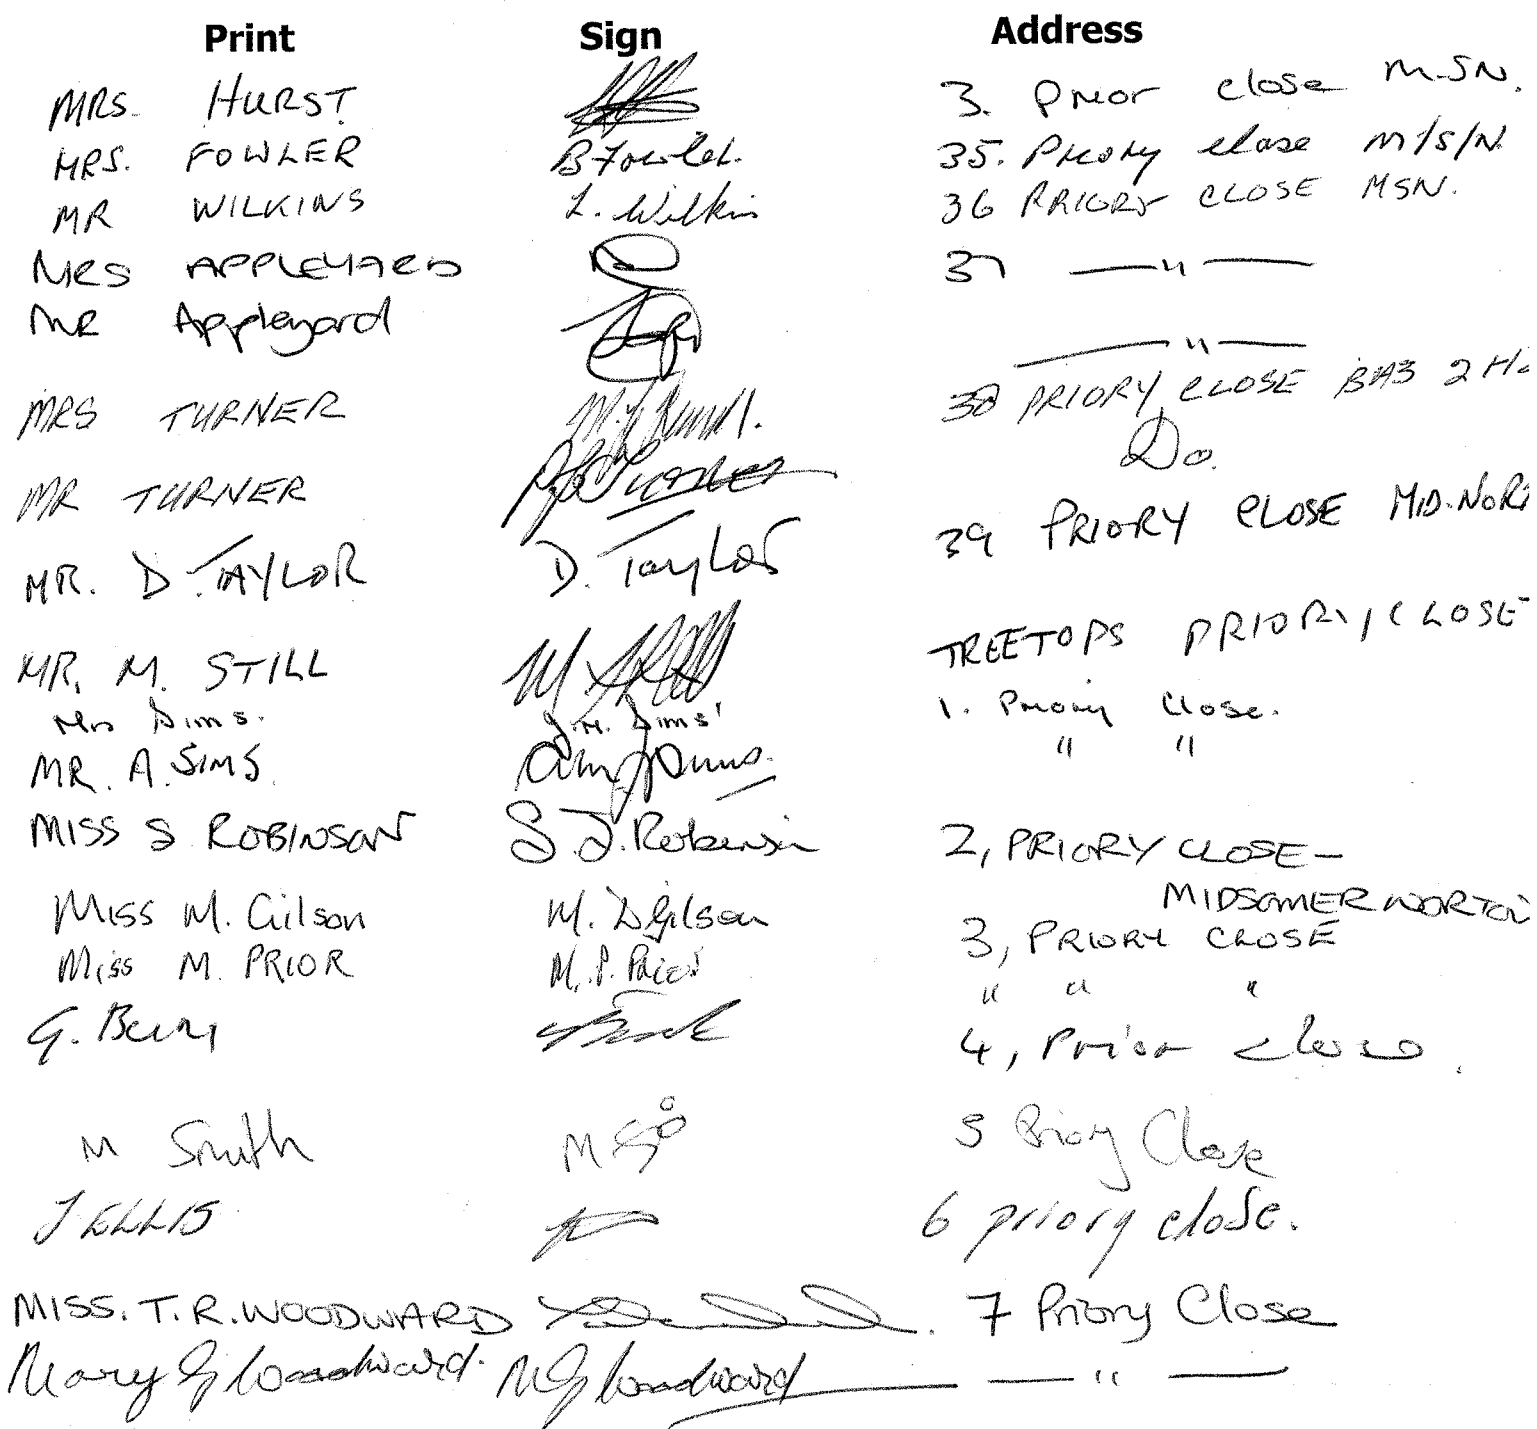 Print Sign Address
MRS. HURST 3. Prior close M.SN.
MRS. FOWLER B Fowler. 35. Priory close M/S/N.
MR WILKINS L. Wilkin 36 PRIORY CLOSE MSN.
MRS APPLEYARD 37 — " —
MR Appleyard — " —
MRS TURNER 38 PRIORY CLOSE BA3 2H
MR TURNER Turner Do.
MR. D. TAYLOR D. Taylor 39 PRIORY CLOSE MID. NOR
MR. M. STILL M Still TREETOPS PRIORY CLOSE
Mrs Sims. J.M. Sims 1. Priory Close.
MR. A. SIMS. " "
MISS S ROBINSON S. J. Robinson 2, PRIORY CLOSE –
MIDSOMER NORTON
Miss M. Gilson M. D Gilson 3, PRIORY CLOSE
Miss M. PRIOR M. P. Prior " " "
G. Berry 4, Prior close.
M Smith M S 5 Priory Close
J ELLIS 6 priory close.
MISS. T. R. WOODWARD 7 Priory Close
Mary G Woodward. M G Woodward — " —